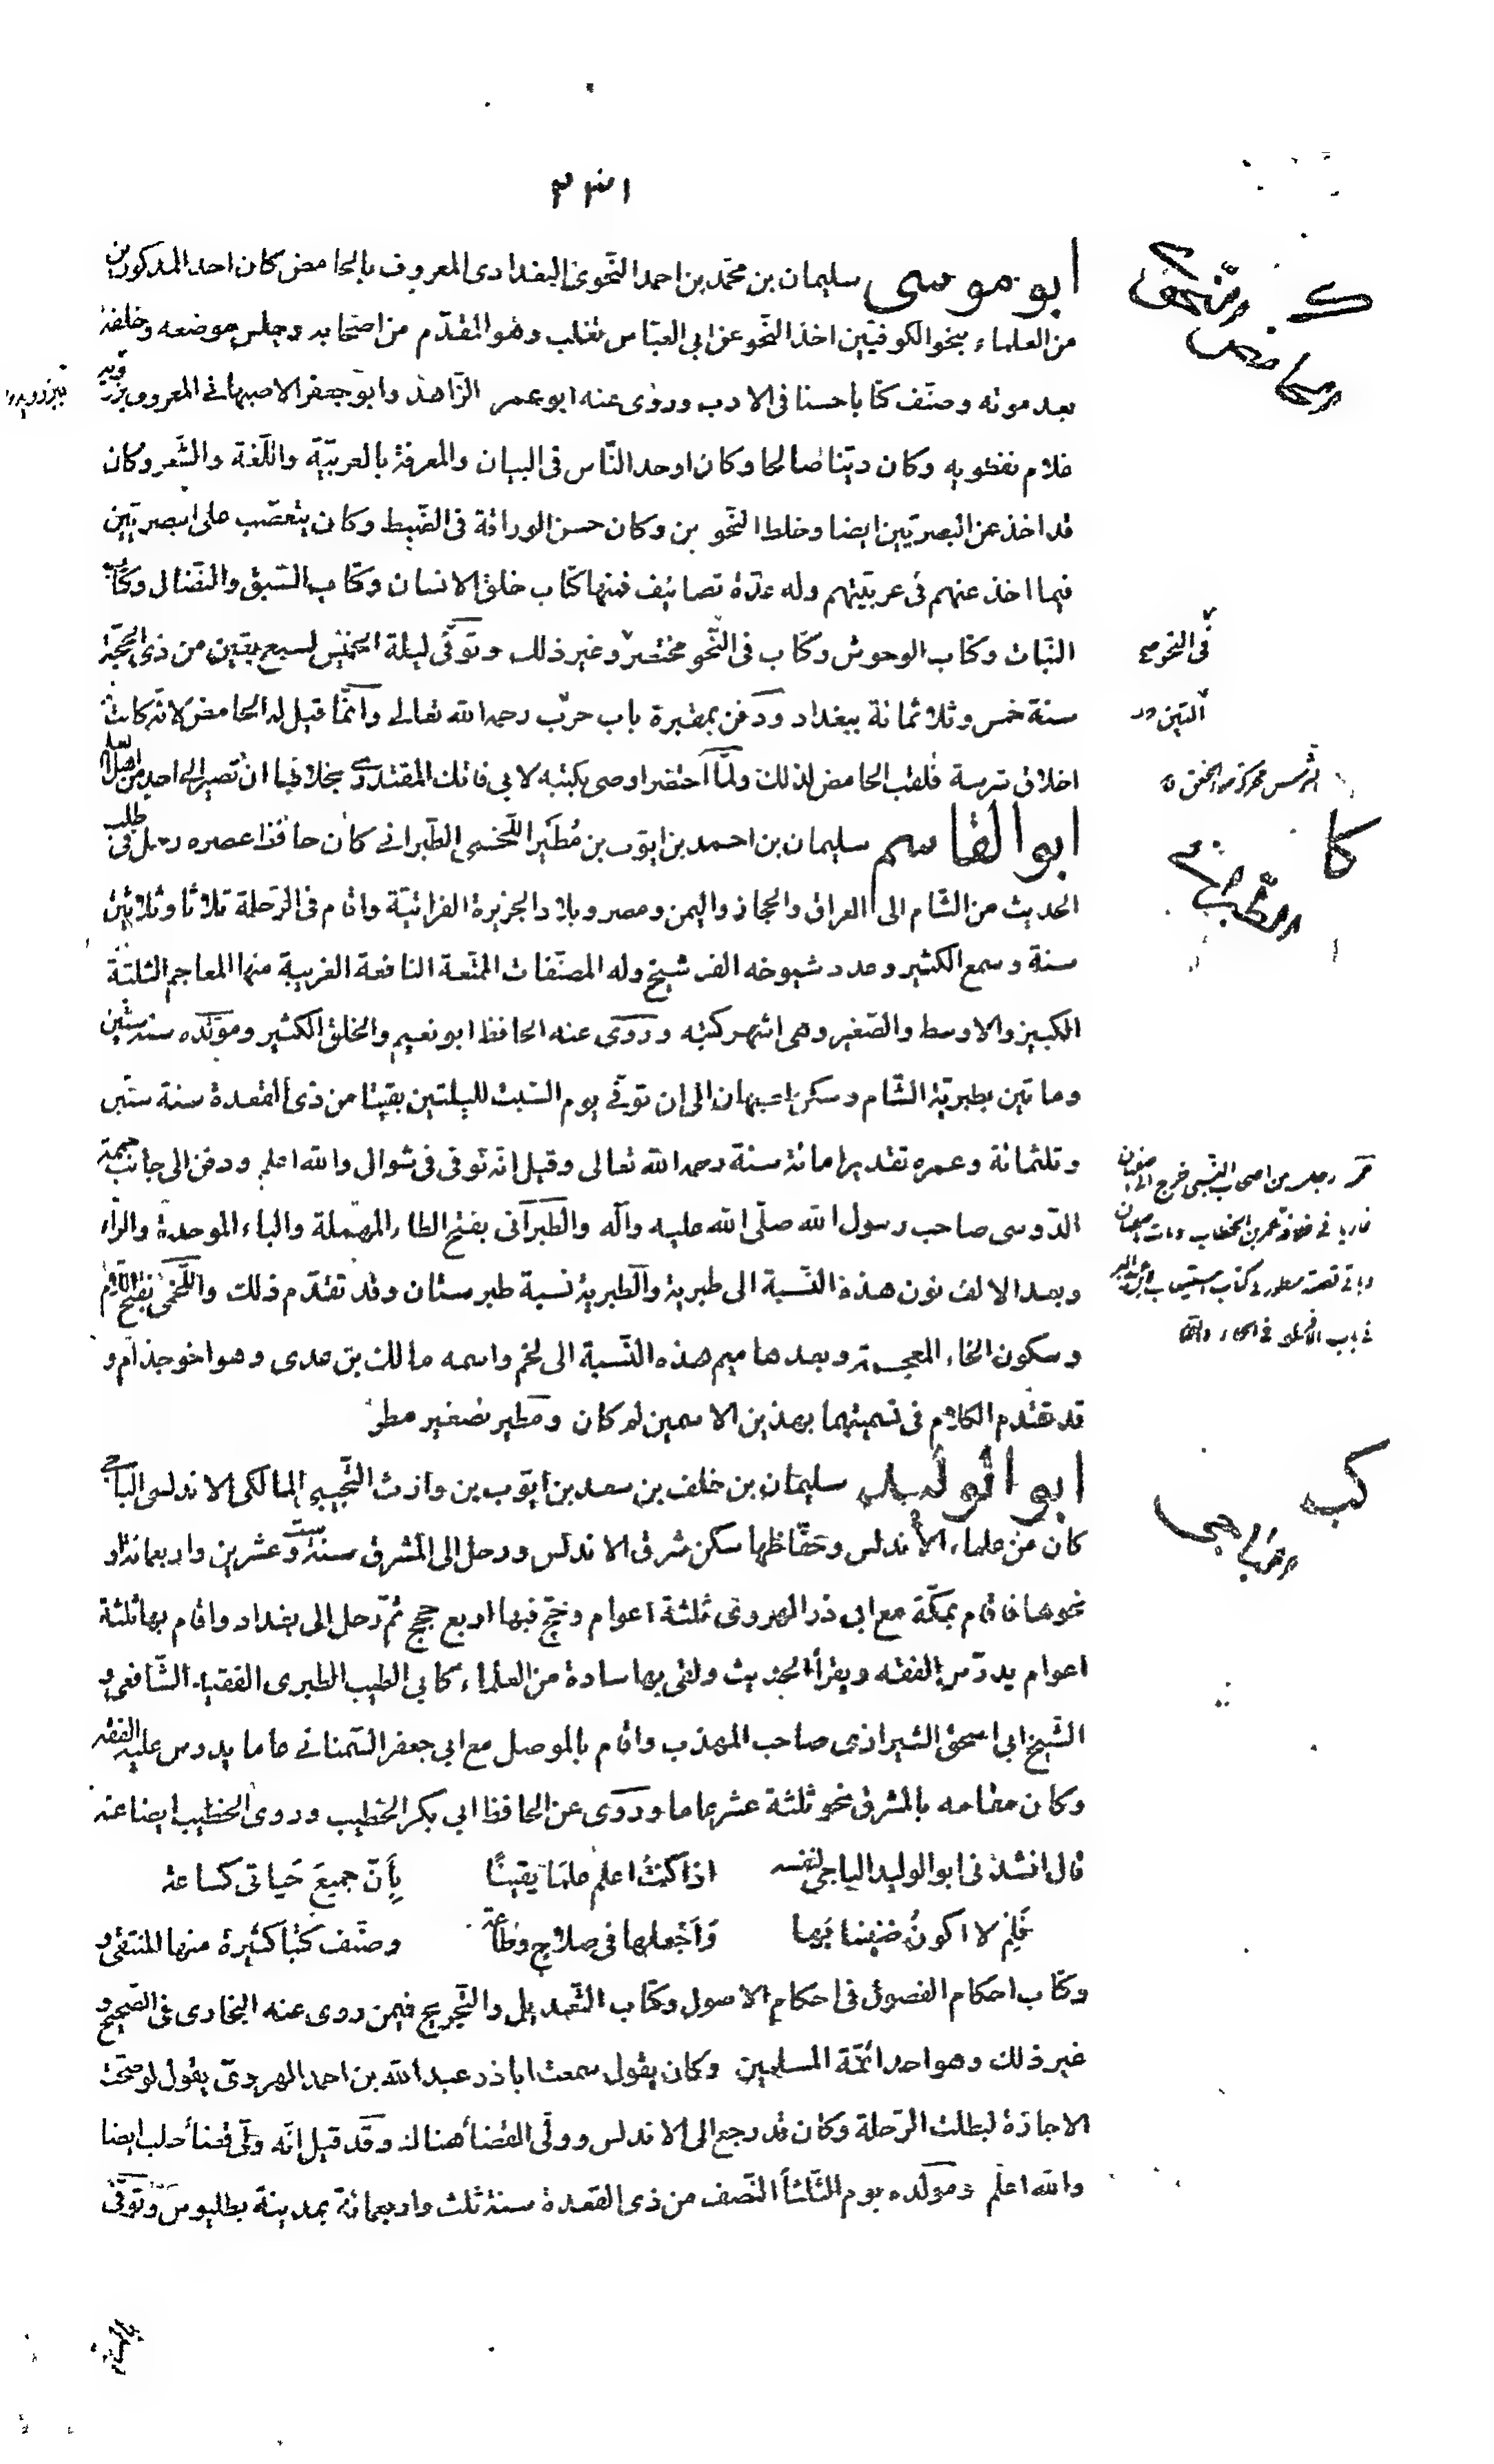 ابو موسى سليمان بن محمد بن احمد النحوى البغدادى المعروف بالحامض كان احد المذكورين
من العلماء بنحو الكوفيين اخذ النحو عن ابى العباس ثعلب وهو المقدم من اصحابه وجلس موضعه وخلفه
بعد موته وصنف كتبا حسنا فى الادب وروى عنه ابو عمر الزاهد وابو جعفر الاصبهانى المعروف ببزرويه
غلام نفطويه وكان دينا صالحا وكان اوحد الناس فى البيان والمعرفة بالعربية واللغة والشعر وكان
قد اخذ عن البصريين ايضا وخلط النحوين وكان حسن الوراقة فى الضبط وكان يتعصب على البصريين
فيما اخذ عنهم فى عربيتهم وله عدة تصانيف فمنها كتاب خلق الانسان وكتاب السبق والنضال وكتاب
النبات وكتاب الوحوش وكتاب فى النحو مختصر وغير ذلك وتوفى ليلة الخميس لسبع بقين من ذى الحجة
سنة خمس وثلاثمائة ببغداد ودفن بمقبرة باب حرب رحمه الله تعالى وانما قيل له الحامض لانه كانت
اخلاق شرسة فلقب الحامض لذلك ولما احتضر اوصى بكتبه لابى فاتك المقتدرى بخلا بها ان تصير الى احد من اهل العلم
ابو القاسم سليمان بن احمد بن ايوب بن مطير اللخمى الطبرانى كان حافظ عصره رحل فى طلب
الحديث من الشام الى العراق والحجاز واليمن ومصر وبلاد الجزيرة الفراتية واقام فى الرحلة ثلاثا وثلاثين
سنة وسمع الكثير وعدد شيوخه الف شيخ وله المصنفات الممتعة النافعة الغريبة منها المعاجم الثلثة
الكبير والاوسط والصغير وهى اشهر كتبه وروى عنه الحافظ ابو نعيم والخلق الكثير ومولده سنة ستين
وماتين بطبرية الشام وسكن اصبهان الى ان توفى يوم السبت لليلتين بقيتا من ذى القعدة سنة ستين
وثلثمائة وعمره تقديرا مائة سنة رحمه الله تعالى وقيل انه توفى فى شوال والله اعلم ودفن الى جانب حممة
الدوسى صاحب رسول الله صلى الله عليه وآله والطبرانى بفتح الطاء المهملة والباء الموحدة والراء
وبعد الالف نون هذه النسبة الى طبرية والطبرية نسبة طبرستان وقد تقدم ذلك واللخمى بفتح اللام
وسكون الخاء المعجمة وبعدها ميم هذه النسبة الى لخم واسمه مالك بن عدى وهو اخو جذام و
قد تقدم الكلام فى تسميتهما بهذين الاسمين لم كان ومطير تصغير مطر
ابو الوليد سليمان بن خلف بن سعد بن ايوب بن وارث التجيبى المالكى الاندلسى الباجى
كان من علماء الاندلس وحفاظها سكن شرق الاندلس ورحل الى المشرق سنة ست وعشرين واربعمائة او
نحوها فاقام بمكة مع ابى ذر الهروى ثلثة اعوام وحج فيها اربع حجج ثم رحل الى بغداد واقام بها ثلثة
اعوام يدرس الفقه ويقرأ الحديث ولقى بها سادة من العلماء كابى الطيب الطبرى الفقيه الشافعى و
الشيخ ابى اسحق الشيرازى صاحب المهذب واقام بالموصل مع ابى جعفر السمنانى عاما يدرس عليه الفقه
وكان مقامه بالمشرق نحو ثلثة عشر عاما وروى عن الحافظ ابى بكر الخطيب وروى الخطيب ايضا عنه
قال انشدنى ابو الوليد الباجى لنفسه اذا كنت اعلم علما يقينا بان جميع حياتى كساعة
فلم لا اكون ضنينا بها واجعلها فى صلاح وطاعة وصنف كتبا كثيرة منها المنتقى و
وكتاب احكام الفصول فى احكام الاصول وكتاب التعديل والتجريح فيمن روى عنه البخارى فى الصحيح و
غير ذلك وهو احد ائمة المسلمين وكان يقول سمعت ابا ذر عبد الله بن احمد الهروى يقول لو صحت
الاجازة لبطلت الرحلة وكان قد رجع الى الاندلس وولى القضاء هناك وقد قيل انه ولى قضاء حلب ايضا
والله اعلم ومولده يوم الثلثا النصف من ذى القعدة سنة ثلث واربعمائة بمدينة بطليوس وتوفى
الحامض
فى النحو صح
كا
الطبرانى
كب
الباجى